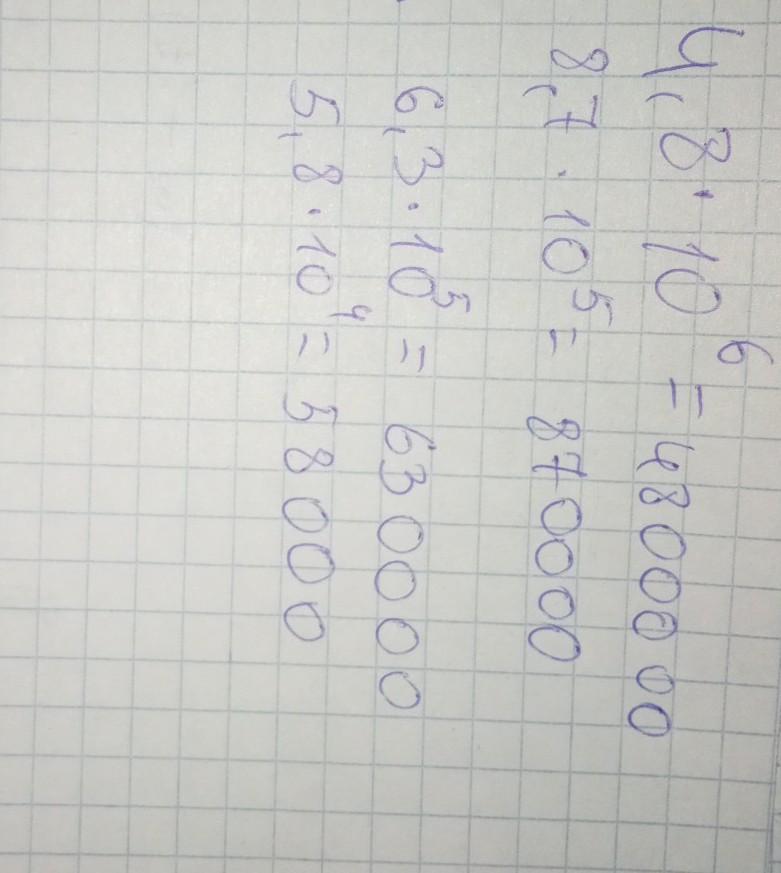 4,8 · 10⁶ = 4800000
8,7 · 10⁵ = 870000
6,3 · 10⁵ = 630000
5,8 · 10⁴ = 58000